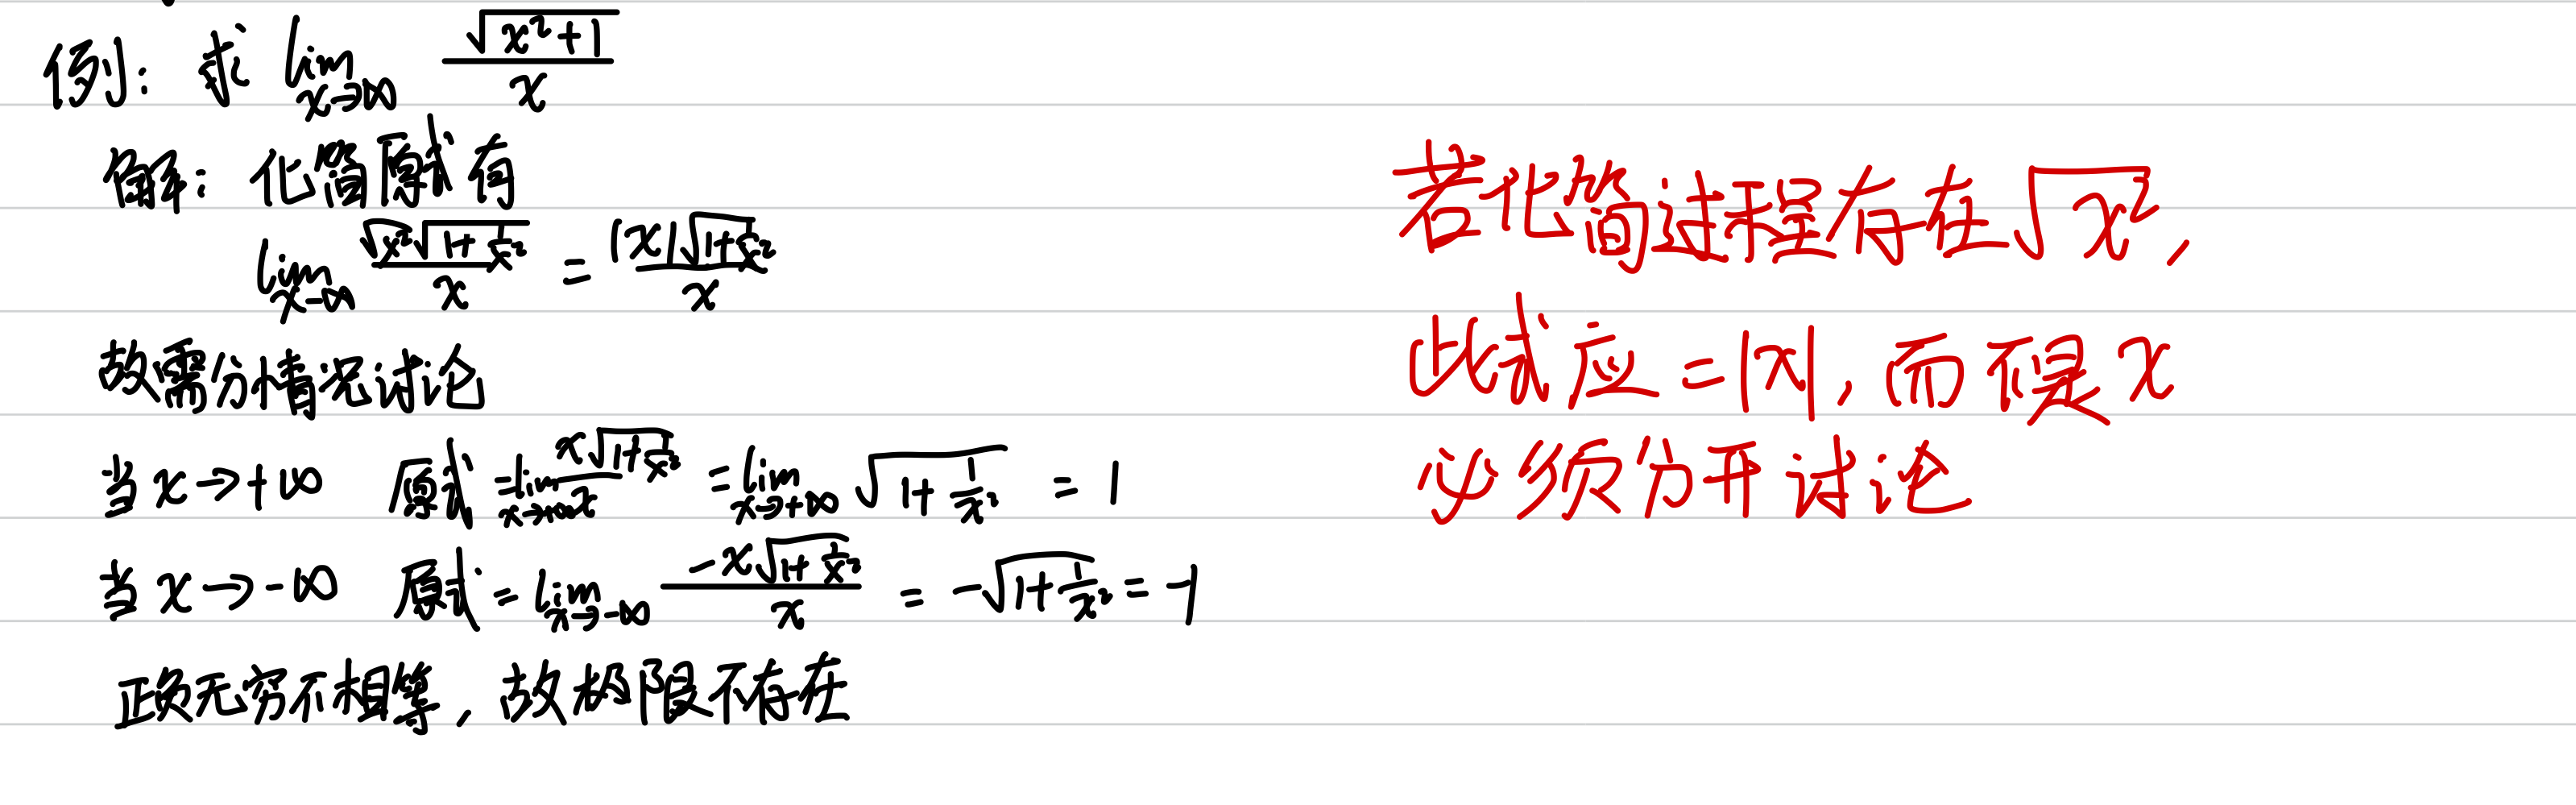 例：求 lim x→∞ √(x²+1) / x
解：化简原式有
lim x→∞ √x² √(1+1/x²) / x = |x|√(1+1/x²) / x
故需分情况讨论
当 x→+∞ 原式 = lim x→+∞ x√(1+1/x²) / x = lim x→+∞ √(1+1/x²) = 1
当 x→-∞ 原式 = lim x→-∞ -x√(1+1/x²) / x = -√(1+1/x²) = -1
正负无穷不相等，故极限不存在
若化简过程存在√x²，
此式应=|x|，而不是x
必须分开讨论